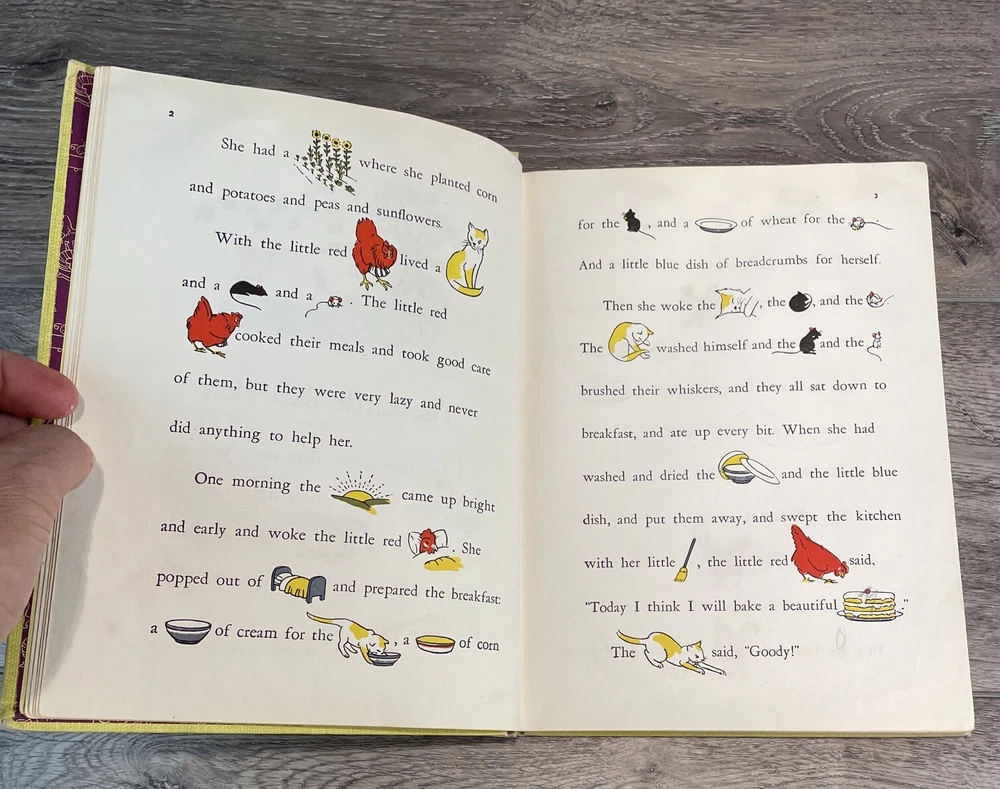 2
She had a where she planted corn
and potatoes and peas and sunflowers.
With the little red lived a
and a and a . The little red
cooked their meals and took good care
of them, but they were very lazy and never
did anything to help her.
One morning the came up bright
and early and woke the little red . She
popped out of and prepared the breakfast:
a of cream for the , a of corn
3
for the , and a of wheat for the .
And a little blue dish of breadcrumbs for herself.
Then she woke the , the , and the .
The washed himself and the and the
brushed their whiskers, and they all sat down to
breakfast, and ate up every bit. When she had
washed and dried the and the little blue
dish, and put them away, and swept the kitchen
with her little , the little red said,
"Today I think I will bake a beautiful ."
The said, "Goody!"